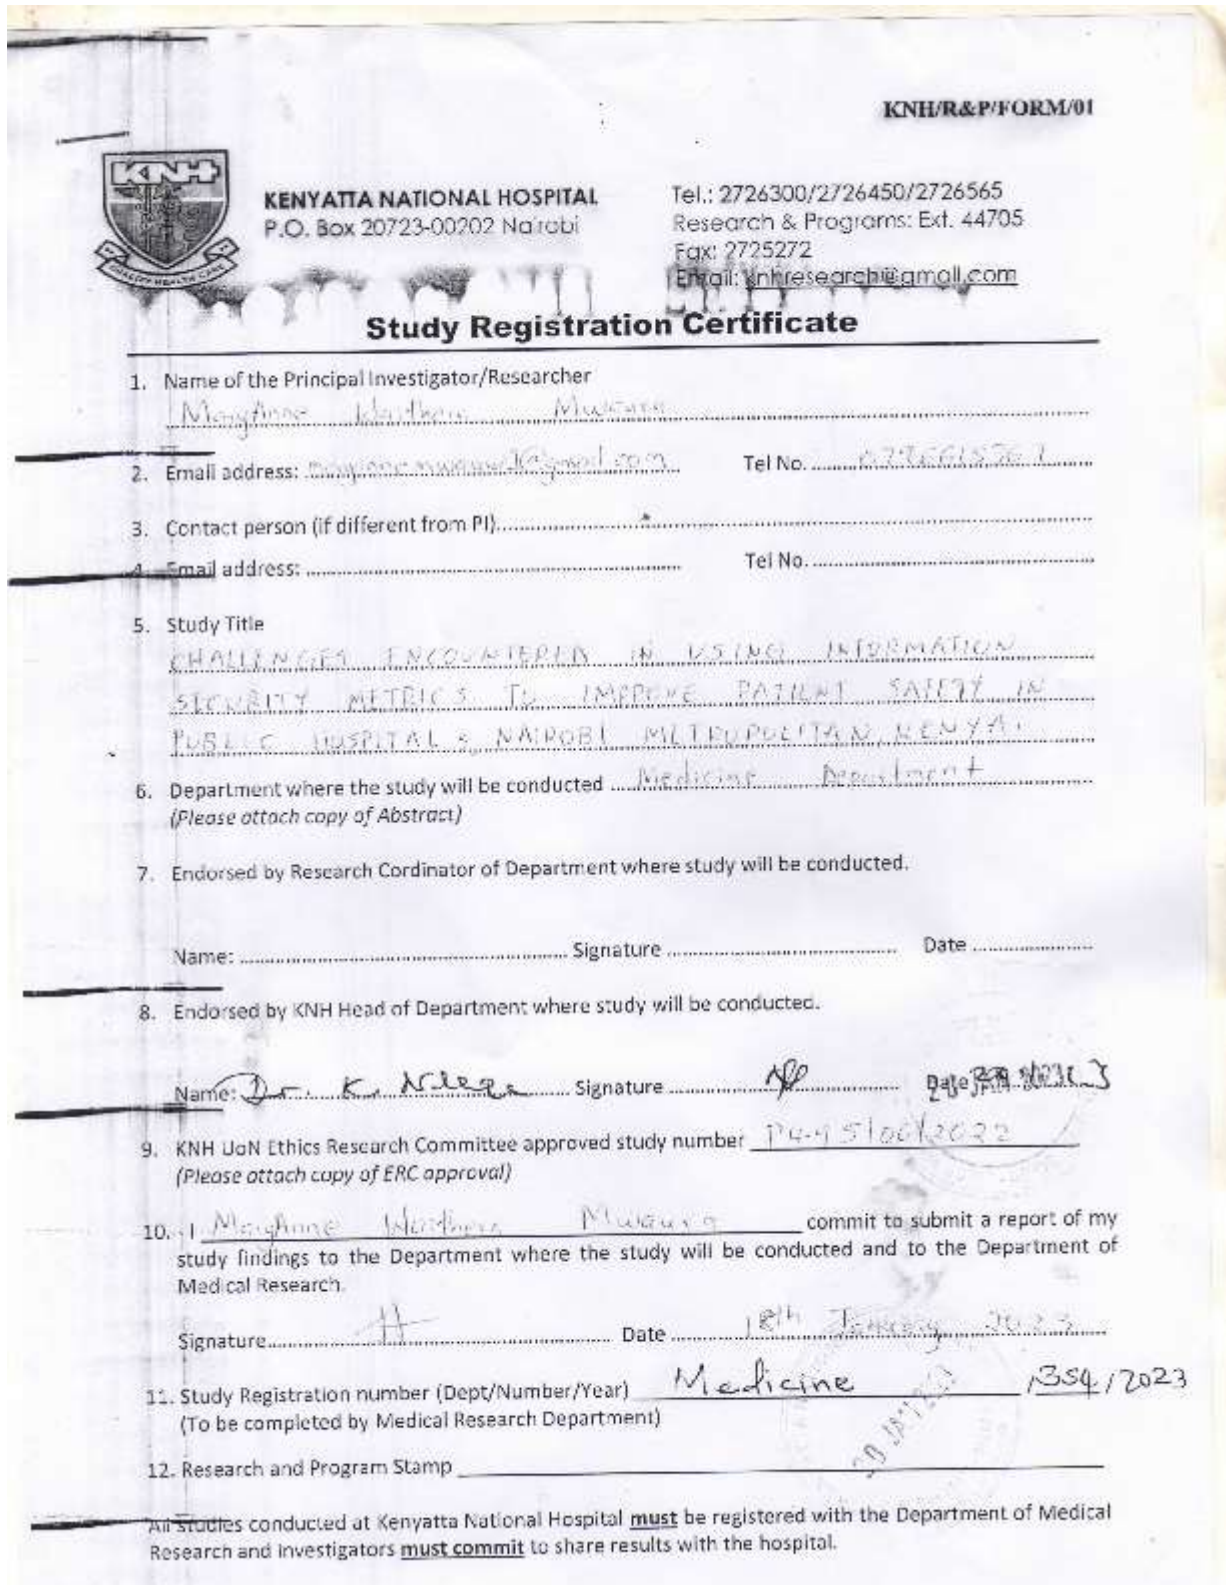 KNH/R&P/FORM/01
KNH
QUALITY HEALTH CARE
KENYATTA NATIONAL HOSPITAL
P.O. Box 20723-00202 Nairobi
Tel.: 2726300/2726450/2726565
Research & Programs: Ext. 44705
Fax: 2725272
Email: knhresearch@gmail.com
Study Registration Certificate
1. Name of the Principal Investigator/Researcher
MaryAnne Mwaura
2. Email address: Tel No.
3. Contact person (if different from PI)
4. Email address: Tel No.
5. Study Title
CHALLENGES ENCOUNTERED IN USING INFORMATION
SECURITY METRICS TO IMPROVE PATIENT SAFETY IN
PUBLIC HOSPITALS NAIROBI METROPOLITAN, KENYA.
6. Department where the study will be conducted Medicine Department
(Please attach copy of Abstract)
7. Endorsed by Research Cordinator of Department where study will be conducted.
Name: Signature Date
8. Endorsed by KNH Head of Department where study will be conducted.
Name: Dr. K. Signature Date
9. KNH UoN Ethics Research Committee approved study number
(Please attach copy of ERC approval)
10. I MaryAnne Mwaura commit to submit a report of my
study findings to the Department where the study will be conducted and to the Department of
Medical Research.
Signature Date 18th January 2023
11. Study Registration number (Dept/Number/Year) Medicine /354/2023
(To be completed by Medical Research Department)
12. Research and Program Stamp
All studies conducted at Kenyatta National Hospital must be registered with the Department of Medical
Research and investigators must commit to share results with the hospital.